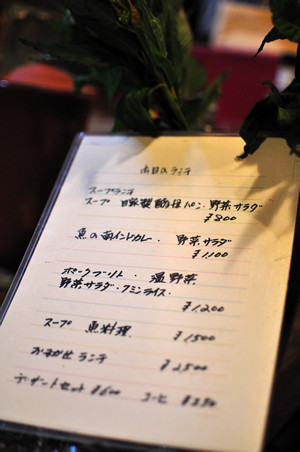 本日のランチ
スープランチ
スープ 自家製酵母パン・野菜サラダ
¥800
魚の南インドカレー・野菜サラダ
¥1,100
ポークソテー・温野菜
野菜サラダ・クミンライス・
¥1,200
スープ 魚料理 ¥1500
おまかせランチ ¥2500
デザートセット ¥600 コーヒー ¥350